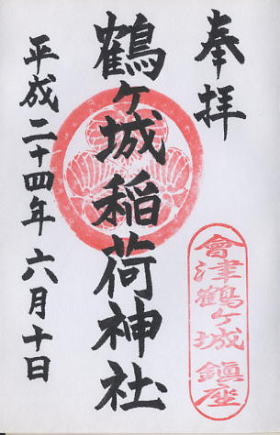 奉拝
會津鶴ヶ城鎮座
鶴ヶ城稲荷神社
平成二十四年六月十日